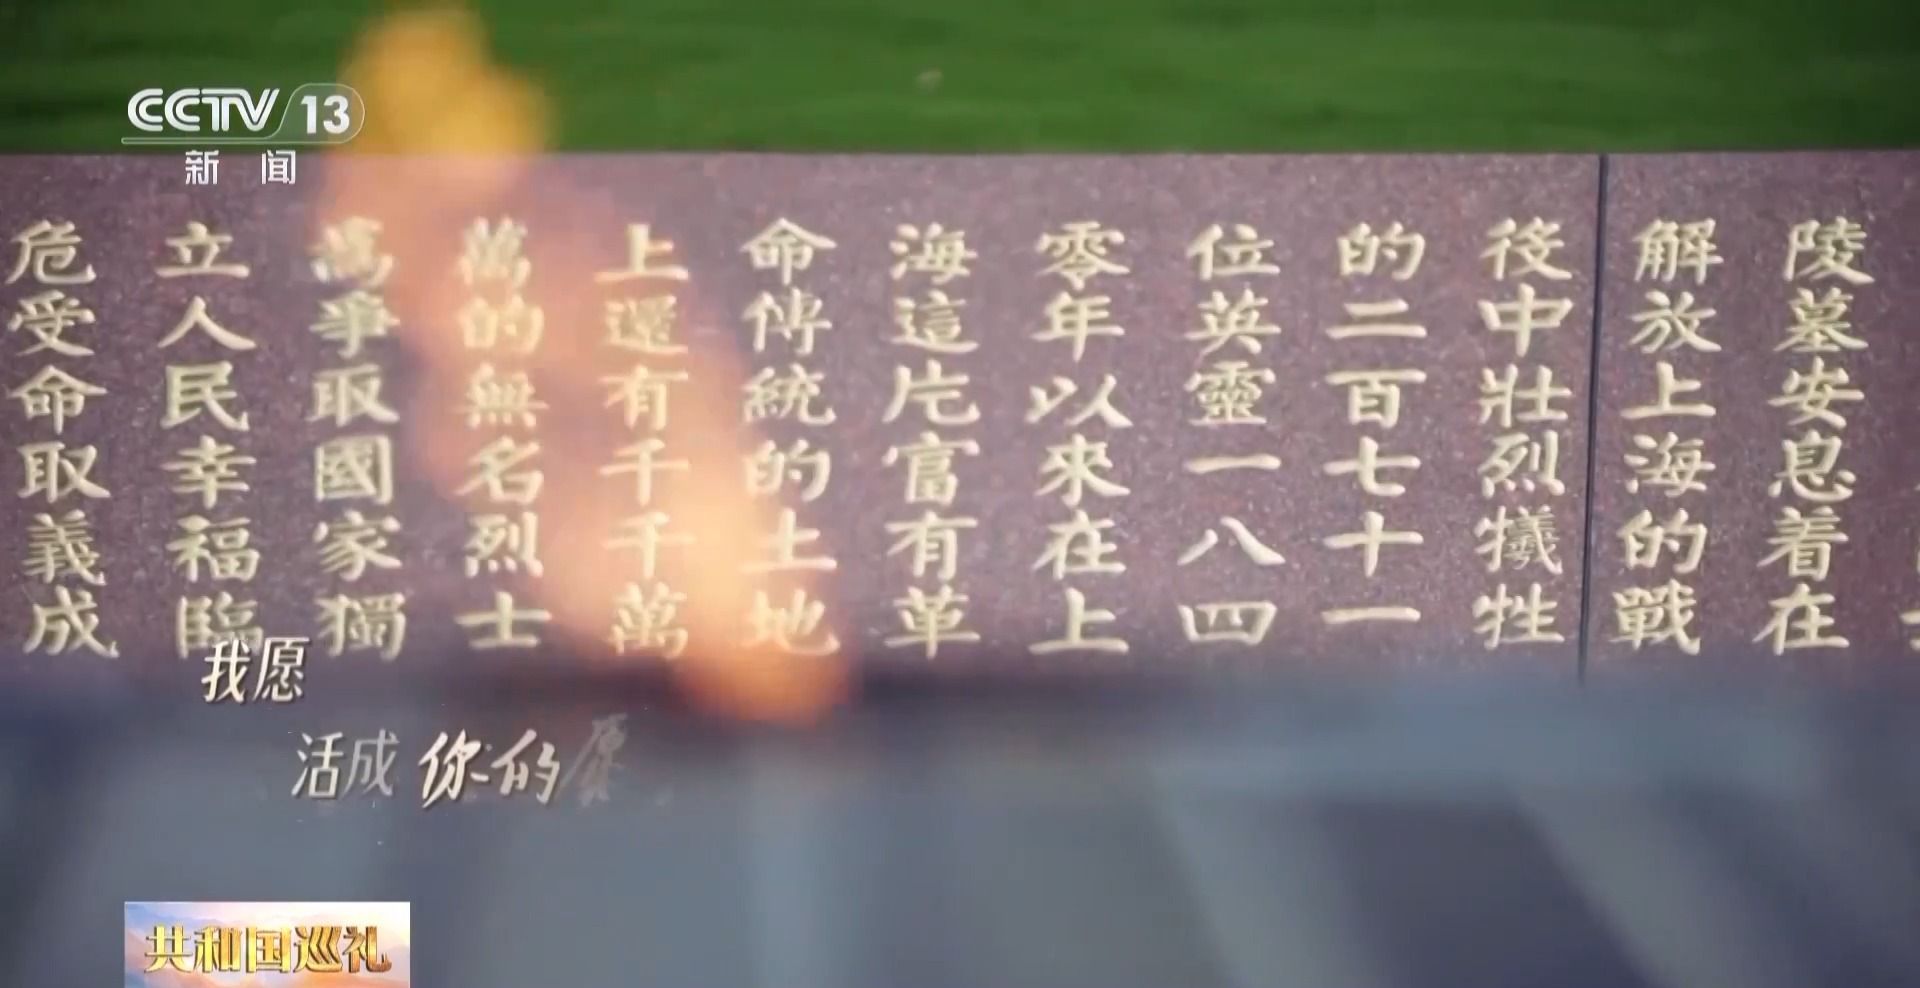 CCTV 13
新闻
陵墓安息着在
解放上海的戰
役中壯烈犧牲
的二百七十一
位英靈一八四
零年以來在上
海這片富有革
命傳統的土地
上還有千千萬
萬的無名烈士
為爭取國家獨
立人民幸福臨
危受命取義成
我愿
活成你的愿
共和国巡礼